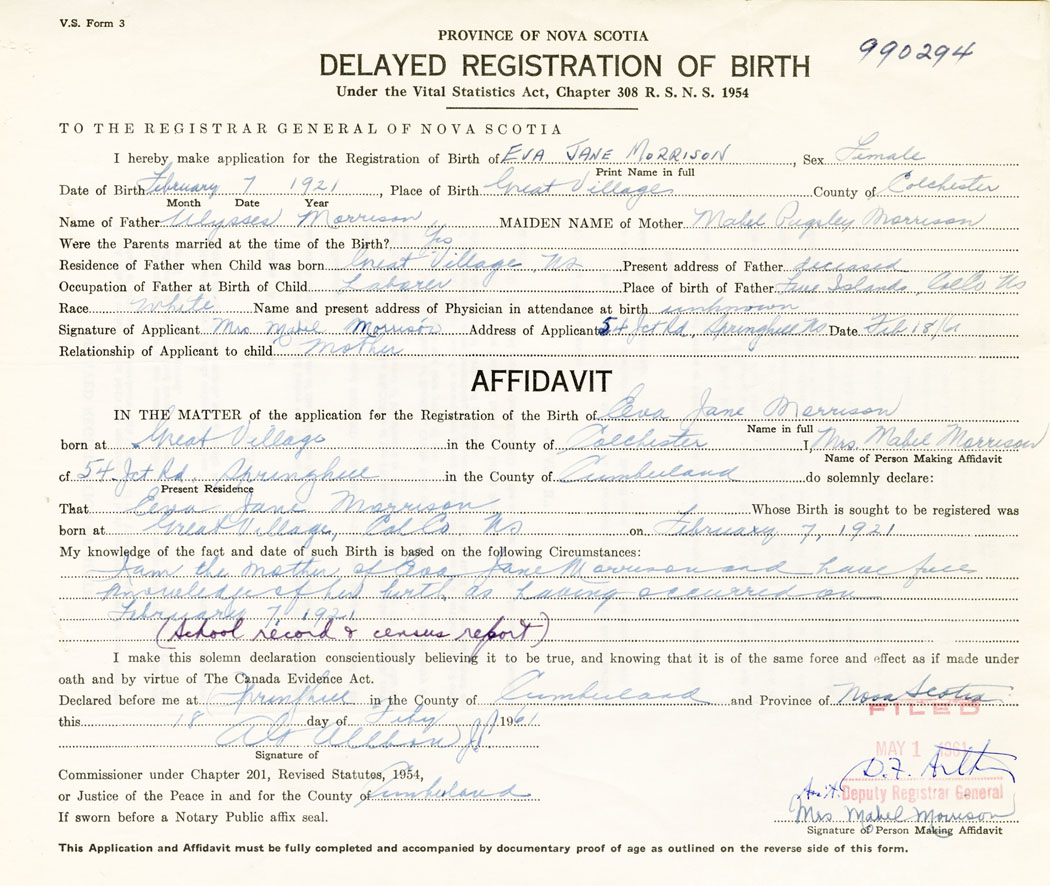 V.S. Form 3
PROVINCE OF NOVA SCOTIA
990294
DELAYED REGISTRATION OF BIRTH
Under the Vital Statistics Act, Chapter 308 R. S. N. S. 1954
TO THE REGISTRAR GENERAL OF NOVA SCOTIA
I hereby make application for the Registration of Birth of EVA JANE MORRISON, Sex Female
Print Name in full
Date of Birth February 7 1921, Place of Birth Great Village County of Colchester
Month Date Year
Name of Father Ulysses Morrison MAIDEN NAME of Mother Mabel Pugsley Morrison
Were the Parents married at the time of the Birth? Yes
Residence of Father when Child was born Great Village, NS Present address of Father deceased
Occupation of Father at Birth of Child Laborer Place of birth of Father Five Islands, Col Co NS
Race White Name and present address of Physician in attendance at birth unknown
Signature of Applicant Mrs Mabel Morrison Address of Applicant 54 Jct Rd, Springhill NS Date Feb 18/61
Relationship of Applicant to child Mother
AFFIDAVIT
IN THE MATTER of the application for the Registration of the Birth of Eva Jane Morrison
Name in full
born at Great Village in the County of Colchester I, Mrs. Mabel Morrison
Name of Person Making Affidavit
of 54 Jct Rd, Springhill in the County of Cumberland do solemnly declare:
Present Residence
That Eva Jane Morrison Whose Birth is sought to be registered was
born at Great Village, Col Co NS on February 7, 1921
My knowledge of the fact and date of such Birth is based on the following Circumstances:
I am the mother of Eva Jane Morrison and have free
knowledge of her birth as having occurred on
February 7, 1921
(School record & census report)
I make this solemn declaration conscientiously believing it to be true, and knowing that it is of the same force and effect as if made under
oath and by virtue of The Canada Evidence Act.
Declared before me at Springhill in the County of Cumberland and Province of Nova Scotia
FILED
this 18 day of Feby 1961
MAY 1 1961
Signature of
Commissioner under Chapter 201, Revised Statutes, 1954,
D.F.
or Justice of the Peace in and for the County of Cumberland
Deputy Registrar General
Mrs Mabel Morrison
If sworn before a Notary Public affix seal.
Signature of Person Making Affidavit
This Application and Affidavit must be fully completed and accompanied by documentary proof of age as outlined on the reverse side of this form.